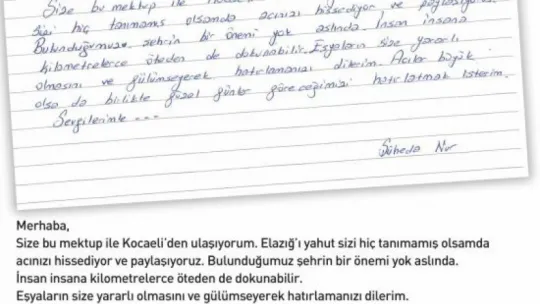 Size bu mektup ile
Sizi hiç tanımamış olsamda acınızı hissediyor ve paylaşıyoruz.
Bulunduğumuz şehrin bir önemi yok aslında. İnsan insana
kilometrelerce öteden de dokunabilir. Eşyaların size yararlı
olmasını ve gülümseyerek hatırlamanızı dilerim. Acılar büyük
olsa da birlikte güzel günler göreceğimizi hatırlatmak isterim.
Sevgilerimle ---
Şüheda Nur
Merhaba,
Size bu mektup ile Kocaeli'den ulaşıyorum. Elazığ'ı yahut sizi hiç tanımamış olsamda
acınızı hissediyor ve paylaşıyoruz. Bulunduğumuz şehrin bir önemi yok aslında.
İnsan insana kilometrelerce öteden de dokunabilir.
Eşyaların size yararlı olmasını ve gülümseyerek hatırlamanızı dilerim.